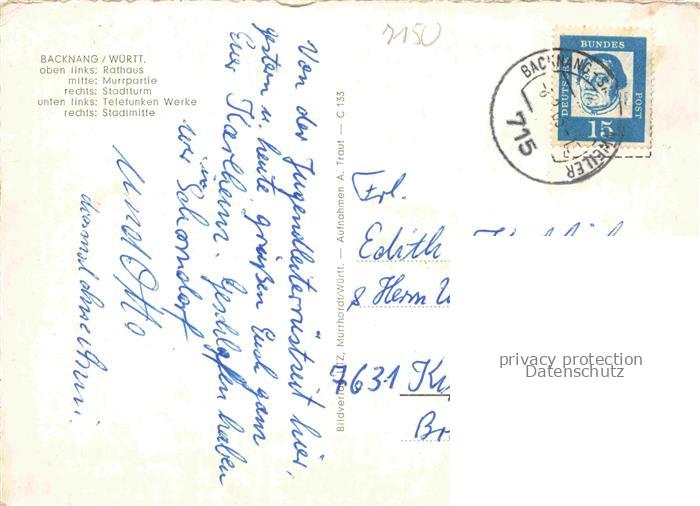 BACKNANG / WÜRTT.
oben links: Rathaus
mitte: Murrpartie
rechts: Stadtturm
unten links: Telefunken Werke
rechts: Stadtmitte
7150
Von der Jugendleiterrüstzeit hier,
gestern u. heute, grüßen Euch ganz
Euer Karlheinz. Geschlafen haben
wir in Schorndorf
und Otto
diesmal ohne
Bildverlag Murrhardt/Württ. — Aufnahmen A. Traut — C 133
BACKNANG
WEILER
715
DEUTSCHE
BUNDES
POST
15
Frl.
Edith
& Herrn
7631
privacy protection
Datenschutz